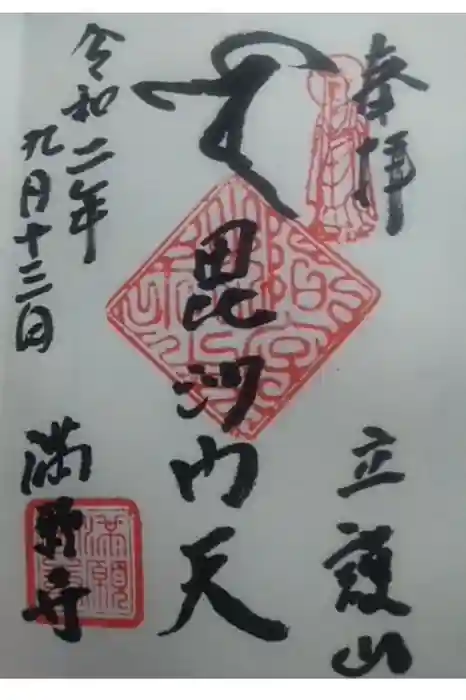 奉拝
立護山
毘沙門天
令和二年
九月十三日
満願寺
満願寺